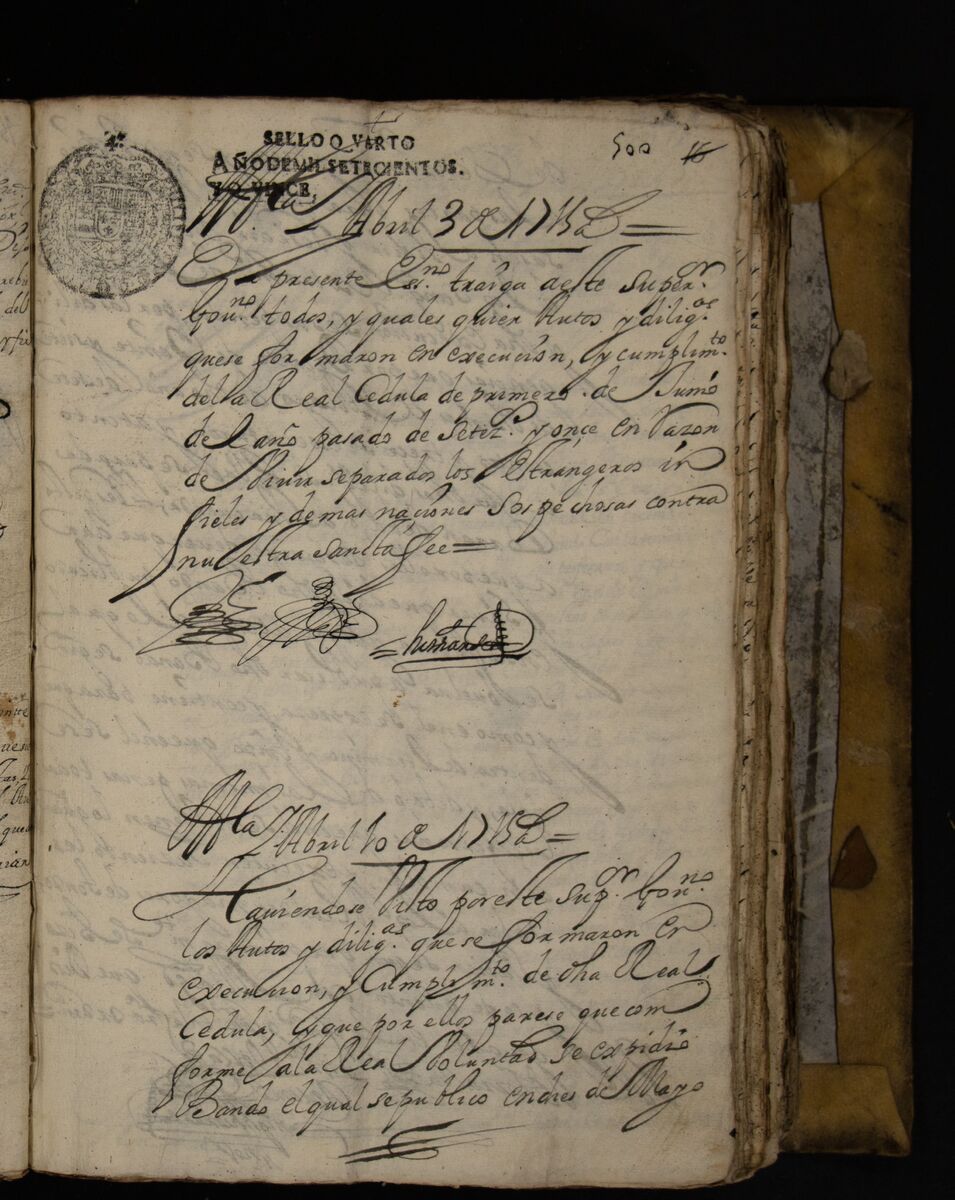 SELLO QVARTO
AÑO DE MIL SETECIENTOS.
Y QVINCE,
500 16
M.la Abril 3 de 1715 as =
El presente Ess.no traiga a este super.r
Gou.no todos, y quales quier Autos y dilig.as
que se formaron en execucion, y cumplim.to
de la Real Cedula de primero de Junio
del año pasado de setez.s y onçe en razon
de Viuir separados los Estrangeros in
fieles y demas naciones Sospechosas contra
nuestra sancta fee =
M.la Abril 10 de 1715 as =
Hauiendose Visto por este sup.or Gou.no
los Autos y dilig.as que se formaron en
execucion, y Cumplim.to de dha Real
Cedula, y que por ellos parese que com
forme a la Real Voluntad se expidio
Bando el qual se publico en dies de Mayo